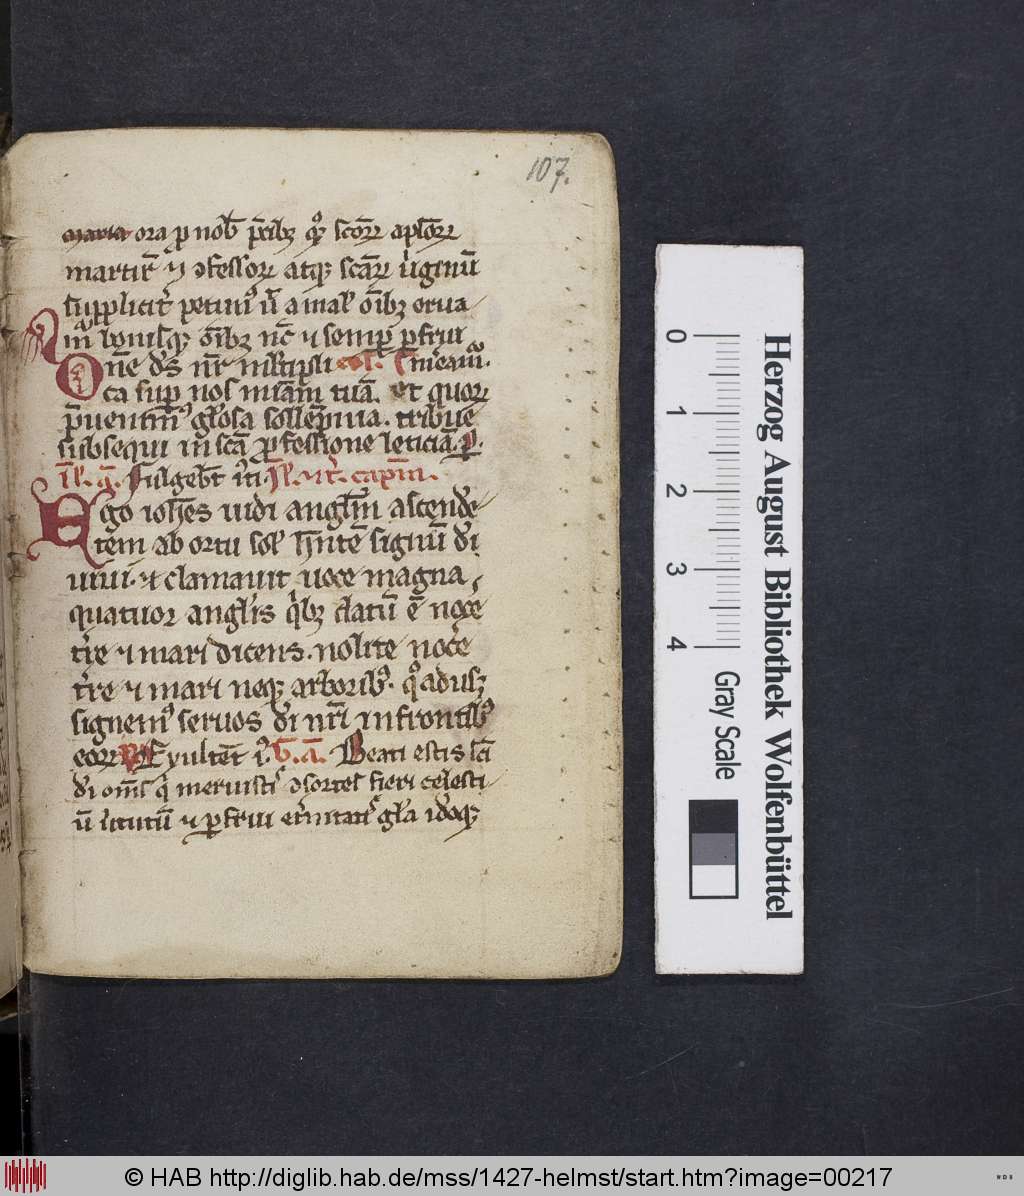 107.
maria ora p nob p̄cibꝫ qͦꝫ scōꝝ aplōꝝ
martiꝝ ⁊ ꝯfessoꝝ atqꝫ scāꝝ ṽginū
supplicit͛ petimꝰ ut͛ a mal͛ oībꝫ erua
mͣ bonisqꝫ oībꝫ nc̄ ⁊ semp̲ p̲frui
one ds̄ nr̄ ml̄tipli
ca sup nos mīam tuā. et quoꝝ
p̄uenimꝰ gl̄osa sollēpnia. tribue
subsequi in scā p̲fessione leticiā. p̲.
Fulgebt̄ iͥti capl̄m.
Ego ioh̄es uidi angl̄m ascende
tēm ab ortu sol͛ hn̄tē signū di͛
uiui. ⁊ clamauit uoce magna
quatuor angl̄is qͥbꝫ datū ē noce
t͛re ⁊ mari dicens. nolite noc͛e
t͛re ⁊ mari neqꝫ arboribꝰ. qͦadusqꝫ
signemꝰ seruos di͛ nr̄i in frontibꝰ
eoꝝ Exultēt i͛. b̄. ā. Beati estis sc̄i
di͛ om̄s qͥ meruisti͛ ꝯsortes fieri celesti
ū ṽtutū ⁊ p̲frui et͛nitati͛ gl̄a id͛oqꝫ
0
1
2
3
4
Gray Scale
Herzog August Bibliothek Wolfenbüttel
© HAB http://diglib.hab.de/mss/1427-helmst/start.htm?image=00217